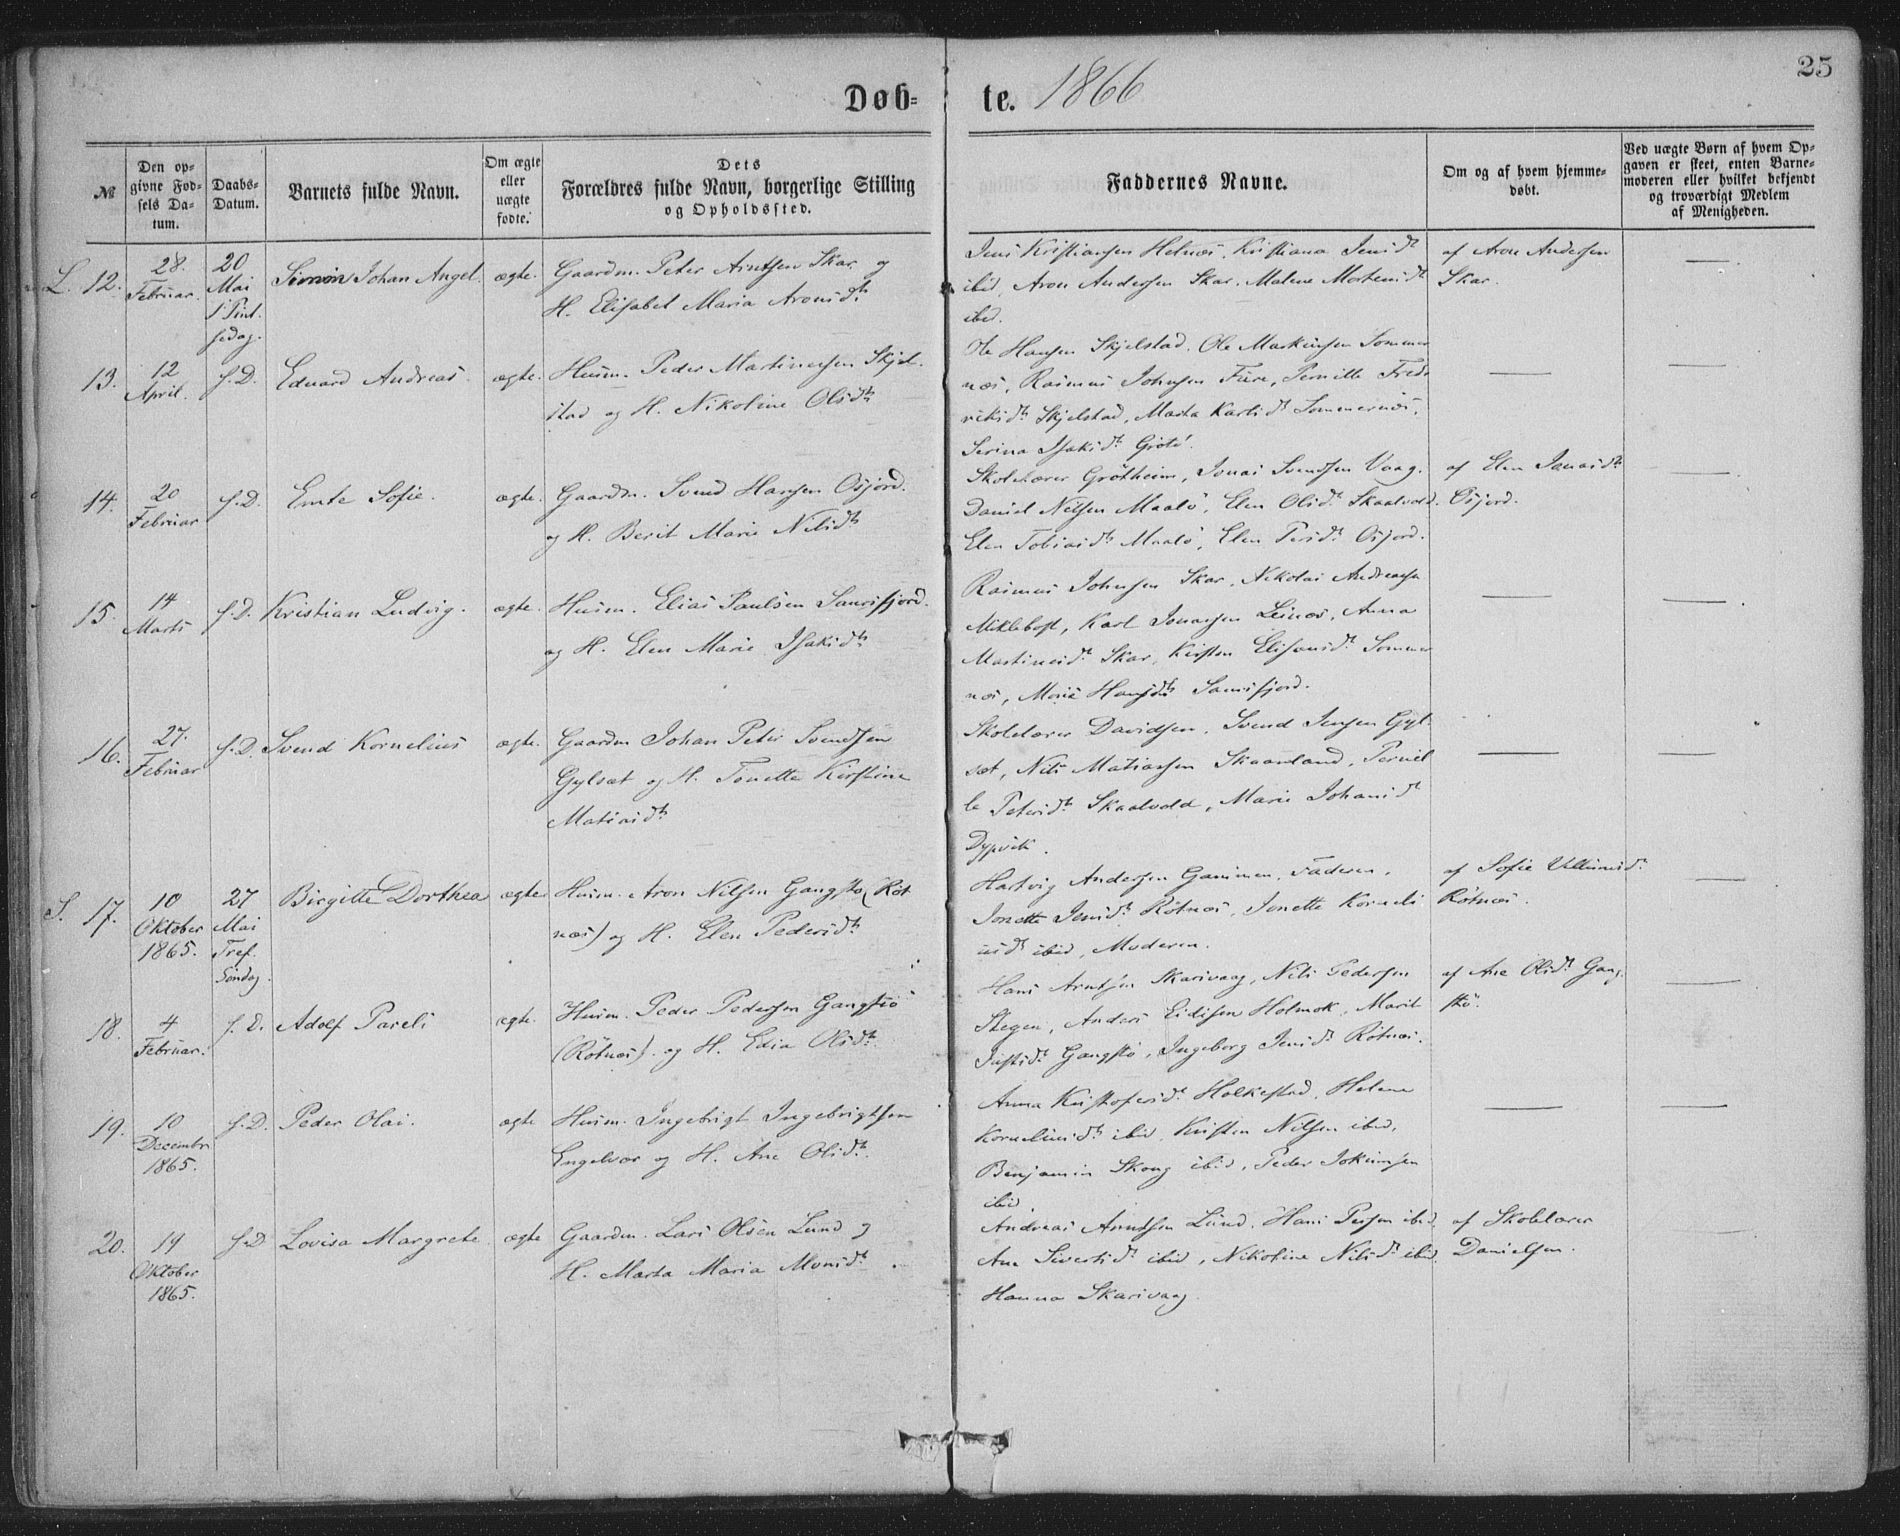 25
Døb= te. 1866
№
Den op=
givne Fød=
sels Da=
tum.
Daabs=
Datum.
Barnets fulde Navn.
Om ægte
eller
uægte
fødte.
Dets
Forældres fulde Navn, borgerlige Stilling
og Opholdssted.
Faddernes Navne.
Om og af hvem hjemme=
døbt.
Ved uægte Børn af hvem Op=
gaven er skeet, enten Barne=
moderen eller hvilket bekjendt
og troværdigt Medlem
af Menigheden.
L. 12.
28.
Februar.
20
Mai
1 Pint
sedag.
Simon Johan Angel.
ægte.
Gaardm. Peter Arntsen Skar og
H. Elisabet Maria Aronsdt
Jens Kristiansen Helnes, Kristiana Jensdt
ibid, Aron Andersen Skar, Malene Mortensdt
ibid.
af Aron Andersen
Skar.
13.
12
April.
s.D.
Eduard Andreas.
ægte.
Husm. Peder Martinussen Skjel-
stad og H. Nikoline Olsdt
Ole Hansen Skjelstad. Ole Markussen Sommer
nes, Rasmus Johnsen Fure, Pernille Fred
riksdt Skjelstad, Marta Karlsdt Sommernes,
Serina Isaksdt Grøtø.
14.
20
Februar
s.D.
Emte Sofie.
ægte.
Gaardm. Svend Hansen Osjord.
og H. Berit Marie Nilsdt
Skolelærer Grøtheim, Jonas Svendsen Vaag.
Daniel Nilsen Maalø, Elen Olsdt Skaalvold.
Elen Tobiasdt Maalø, Elen Persdt Osjord.
af Elen Jonasdt
Osjord.
15.
14
Marts
s.D.
Kristian Ludvig.
ægte.
Husm. Elias Paulsen Saursfjord.
og H. Elen Marie Isaksdt
Rasmus Johnsen Skar, Nikolai Andreasen
Miklebost, Karl Jonassen Leines, Anna
Martinesdt Skar, Kirsten Elisæusdt Sommer
nes, Marie Hansdt Saursfjord.
16.
27.
Februar
s.D.
Svend Kornelius
ægte.
Gaardm Johan Peter Svendsen
Gylset og H. Tonette Kirstine
Matiasdt
Skolelærer Davidsen, Svend Jensen Gyl-
set, Nils Matiassen Skaanland, Pernil
le Petersdt Skaalvold, Marie Johansdt
Dypvik.
S. 17.
10
Oktober
1865.
27
Mai
Tref.
Søndag.
Birgitte Dorthea
ægte
Husm. Aron Nilsen Gangstø (Røt
nes) og H. Elen Pedersdt
Hartvig Andersen Gammen, Faderen,
Jonette Jensdt Røtnes, Jonette Korneli
usdt ibid, Moderen.
af Sofie Villumsdt
Røtnes.
18.
4
Februar.
s.D.
Adolf Pareli
ægte.
Husm. Peder Pedersen Gangstø
(Røtnes). og H. Edia Olsdt
Hans Arntsen Skarivaag, Nils Pedersen
Stegen, Anders Eidissen Holmok, Marit
Justsdt Gangstø, Ingeborg Jensdt Røtnes.
af Ane Olsdt Gang
stø.
19.
10
Decembr
1865.
s.D.
Peder Olai.
ægte
Husm. Ingebrigt Ingebrigtsen
Engelvær og H. Ane Olsdt
Anna Kristofersdt Holkestad, Helene
Korneliusdt ibid, Kristen Nilsen ibid,
Benjamin Skoug ibid, Peder Jokumsen
ibid.
20.
19
Oktober
1865.
s.D
Lovisa Margrete
ægte
Gaardm. Lars Olsen Lund og
H. Marta Maria Monsdt
Andreas Arntsen Lund, Hans Persen ibid,
Ane Sivertsdt ibid, Nikoline Nilsdt ibid,
Hanna Skarivaag.
af Skolelærer
Danielsen.